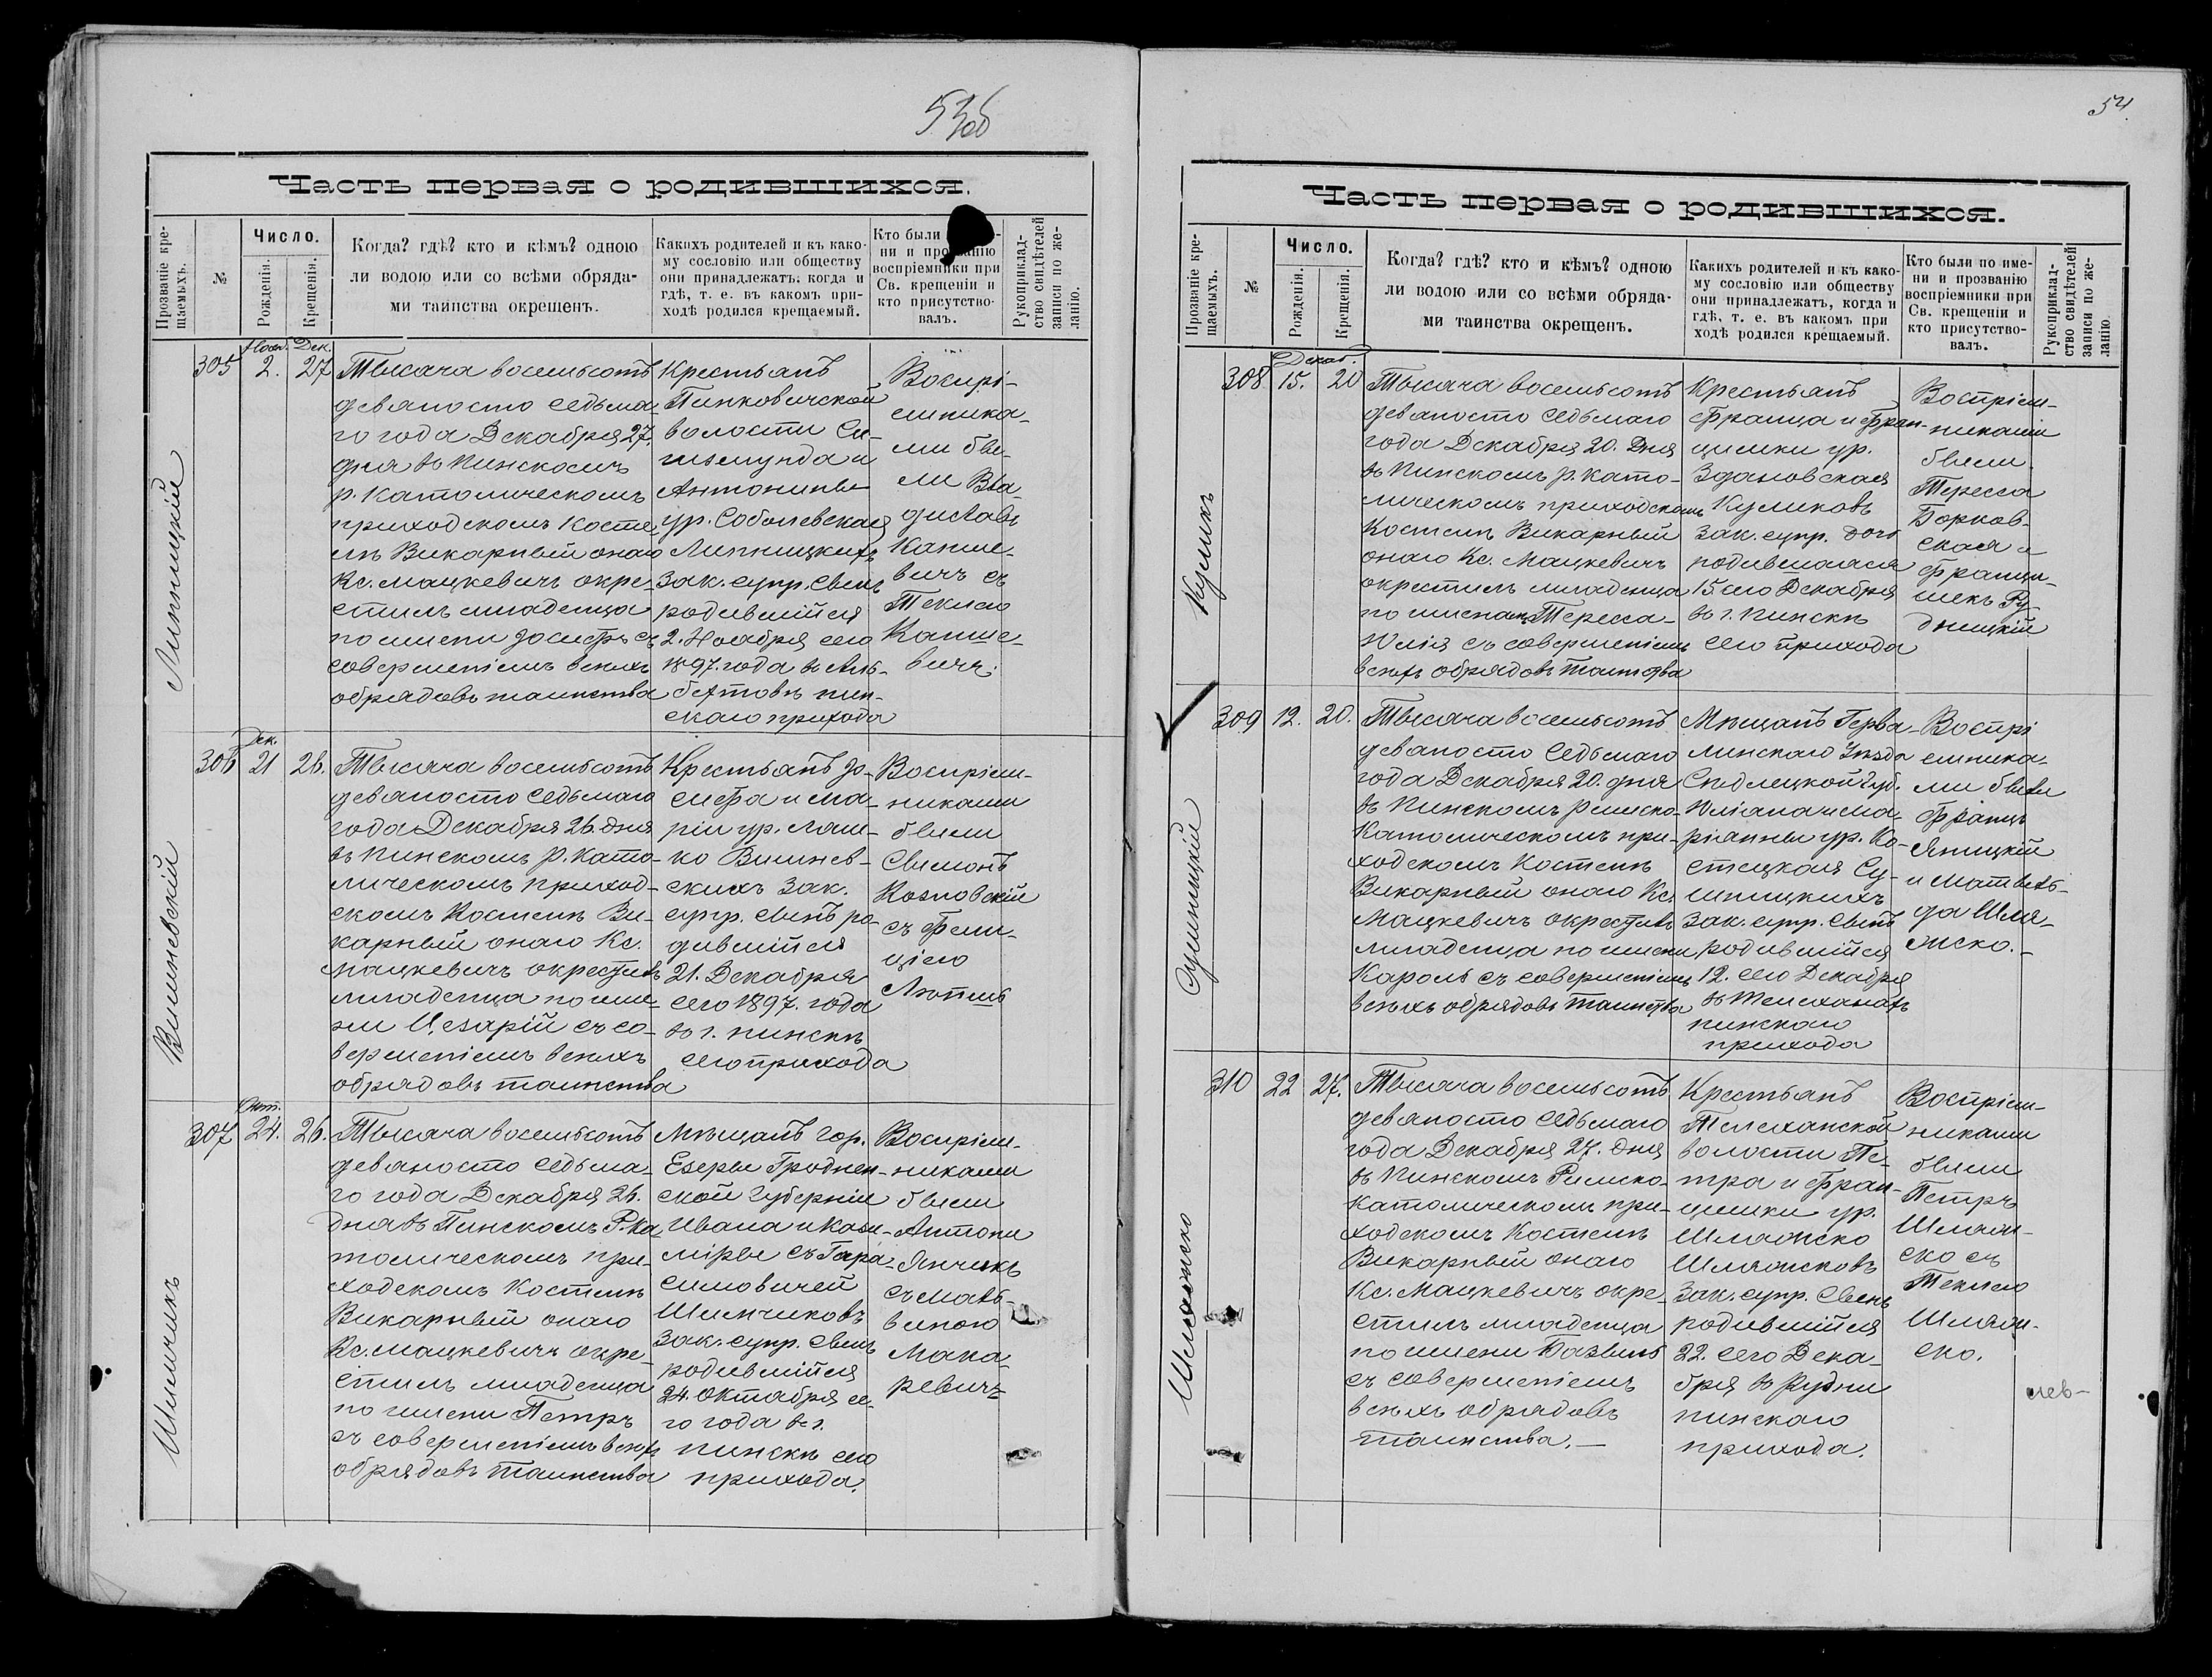 53об
Часть первая о родившихся.
Прозваніе кре-
щаемыхъ.
№
Число.
Рожденія.
Крещенія.
Когда? гдѣ? кто и кѣмъ? одною
ли водою или со всѣми обряда-
ми таинства окрещенъ.
Какихъ родителей и къ како-
му сословію или обществу
они принадлежатъ, когда и
гдѣ, т. е. въ какомъ при-
ходѣ родился крещаемый.
Кто были
ни и прозванію
воспріемники при
Св. крещеніи и
кто присутство-
валъ.
Рукоприклад-
ство свидѣтелей
записи по же-
ланію.
Липницкій
305
Нояб. Дек.
2. 27
Тысяча восемьсотъ
девяносто седьма-
го года Декабря 27.
дня въ Пинскомъ
р. Католическомъ
приходскомъ Косте-
лѣ Викарный онаго
Кс. Мацкевичъ окре-
стилъ младенца
по имени Іосифъ съ
совершеніемъ всѣхъ
обрядовъ таинства
Крестьянъ
Пинковичской
волости Си-
гизмунда и
Антонины
ур. Соболевская
Липницкихъ
зак. супр. сынъ
родившійся
2. Ноября сего
1897. года въ Аль-
бѣтовѣ пин-
скаго прихода
Воспрі-
емника-
ми бы-
ли Вла-
диславъ
Капце-
вичъ съ
Теклею
Капце-
вичъ.
Вишневскій
306
Дек.
21 26.
Тысяча восемьсотъ
девяносто седьмаго
года Декабря 26. дня
въ Пинскомъ р. Като-
лическомъ приход-
скомъ Костелѣ Ви-
карный онаго Кс.
Мацкевичъ окрестилъ
младенца по име-
ни Цезарій съ со-
вершеніемъ всѣхъ
обрядовъ таинства
Крестьянъ Іо-
сифа и Ма-
ріи ур. Лаш-
ко Вишнев-
скихъ зак.
супр. сынъ ро-
дившійся
21. Декабря
сего 1897. года
въ г. Пинскѣ
сего прихода
Воспріем-
никами
были
Сымонъ
Козловскій
съ Фели-
ціею
Шимчикъ
307
Окт.
24. 26.
Тысяча восемьсотъ
девяносто седьма-
го года Декабря 26.
дня въ Пинскомъ Р. Ка-
толическомъ при-
ходскомъ Костелѣ
Викарный онаго
Кс. Мацкевичъ окре-
стилъ младенца
по имени Петръ
съ совершеніемъ всѣхъ
обрядовъ таинства
Мѣщанъ гор.
Езеры Гроднен-
ской губерніи
Ивана и Кази-
міры съ Гара-
симовичей
Шимчиковъ
зак. супр. сынъ
родившійся
24. Октября се-
го года въ г.
Пинскѣ сего
прихода.
Воспріем-
никами
были
Антони
Янчикъ
съ Маль-
виною
Мака-
ревичъ
54.
Часть первая о родившихся.
Прозваніе кре-
щаемыхъ.
№
Число.
Рожденія.
Крещенія.
Когда? гдѣ? кто и кѣмъ? одною
ли водою или со всѣми обряда-
ми таинства окрещенъ.
Какихъ родителей и къ како-
му сословію или обществу
они принадлежатъ, когда и
гдѣ, т. е. въ какомъ при
ходѣ родился крещаемый.
Кто были по име-
ни и прозванію
воспріемники при
Св. крещеніи и
кто присутство-
валъ.
Рукоприклад-
ство свидѣтелей
записи по же-
ланію
Куликъ
308
Декаб.
15. 20
Тысяча восемьсотъ
девяносто седьмаго
года Декабря 20. дня
въ Пинскомъ р. Като-
лическомъ приходскомъ
Костелѣ Викарный
онаго Кс. Мацкевичъ
окрестилъ младенца
по именамъ Тересса-
Юлія съ совершеніемъ
всѣхъ обрядовъ таинства
Крестьянъ
Франца и Фран-
цишки ур.
Здановская
Куликовъ
зак. супр. дочь
родившаяся
15. сего Декабря
въ г. Пинскѣ
сего прихода
Воспріем-
никами
были
Тересса
Борков-
ская и
Франци-
шекъ Ру-
дницкій
Сушицкій
309
12. 20.
Тысяча восемьсотъ
девяносто седьмаго
года Декабря 20. дня
въ Пинскомъ Римско-
Католическомъ при-
ходскомъ Костелѣ
Викарный онаго Кс.
Мацкевичъ окрестилъ
младенца по имени
Кароль съ совершеніемъ
всѣхъ обрядовъ таинства
Мѣщанъ Герва-
линскаго уѣзда
Сѣдлецкой губ.
Юліана и Ма-
ріанны ур. Ко-
стецкая Су-
шицкихъ
зак. супр. сынъ
родившійся
12. сего Декабря
въ Телеханахъ
пинскаго
прихода
Воспрі
емника-
ми были
Францъ
Яницкій
и Матиль-
да Шля-
жско.-
Шляжско
310
22 27.
Тысяча восемьсотъ
девяносто седьмаго
года Декабря 27. дня
въ Пинскомъ Римско-
католическомъ при-
ходскомъ Костелѣ
Викарный онаго
Кс. Мацкевичъ окре-
стилъ младенца
по имени Базыль
съ совершеніемъ
всѣхъ обрядовъ
таинства.—
Крестьянъ
Телеханской
волости Пе-
тра и Фран-
цишки ур.
Шляжско
Шляжсковъ
зак. супр. сынъ
родившійся
22. сего Дека-
бря въ Рудни
пинскаго
прихода.
Воспріем-
никами
были
Петръ
Шляж-
ско съ
Теклею
Шляж-
ско.